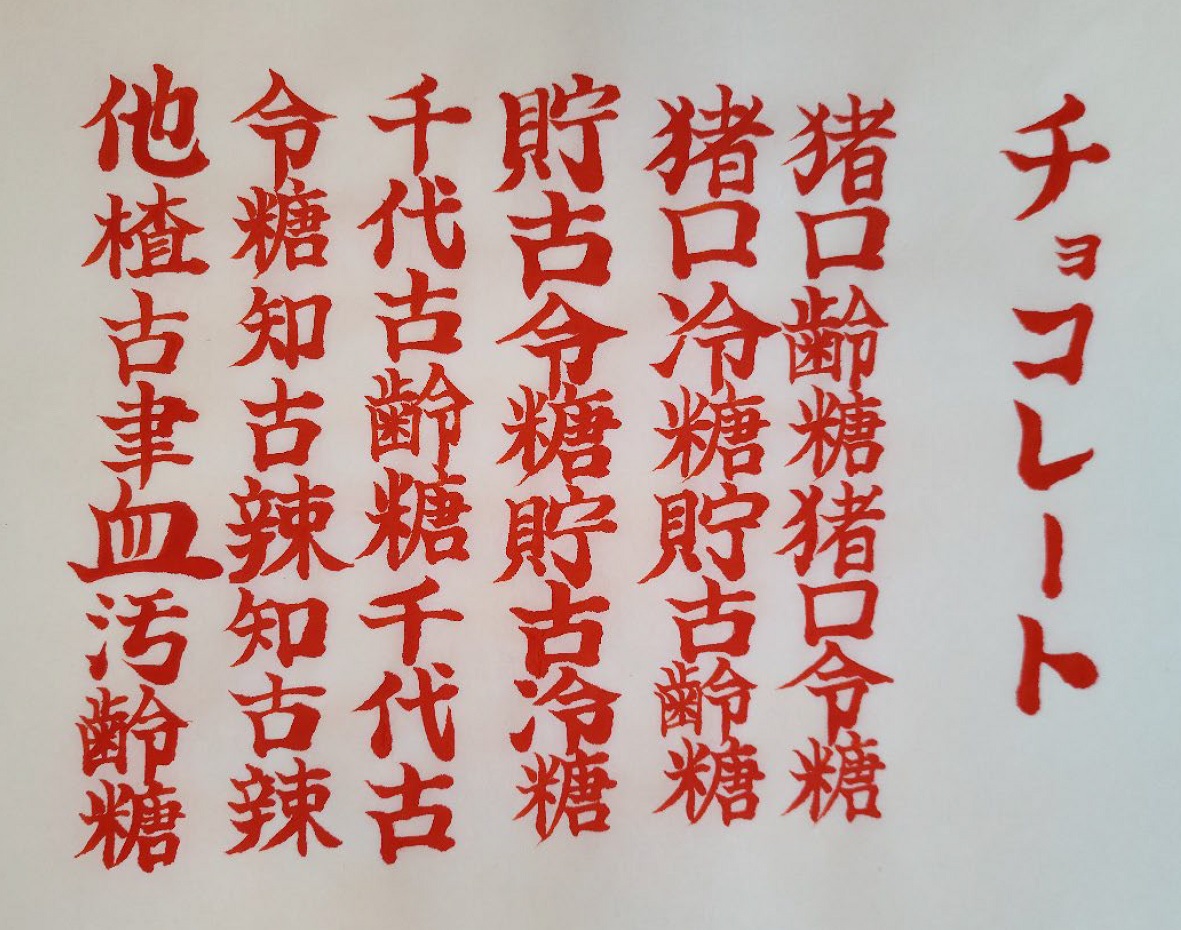 チョコレート
猪口齢糖猪口令糖
猪口冷糖貯古齢糖
貯古令糖貯古冷糖
千代古齢糖千代古
令糖知古辣知古辣
他楂古聿血汚齢糖